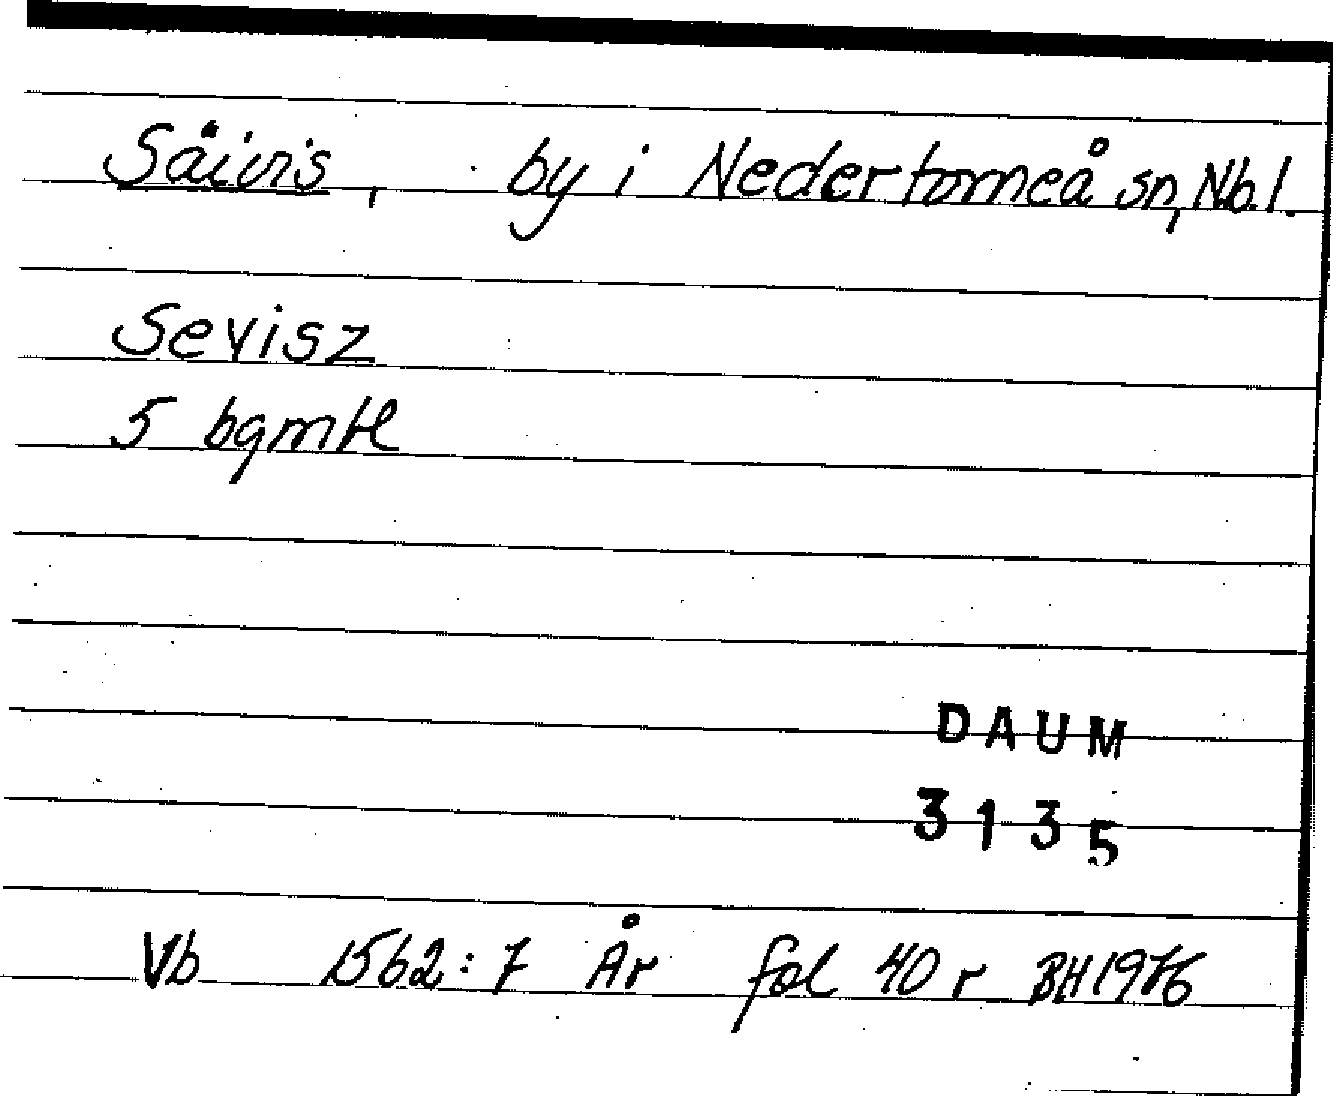 Säivis, by i Nedertorneå sn, Nb.l.
Sevisz
5 bgmtl
DAUM
3135
Vb 1562:7 År fol 40 r BH 1976